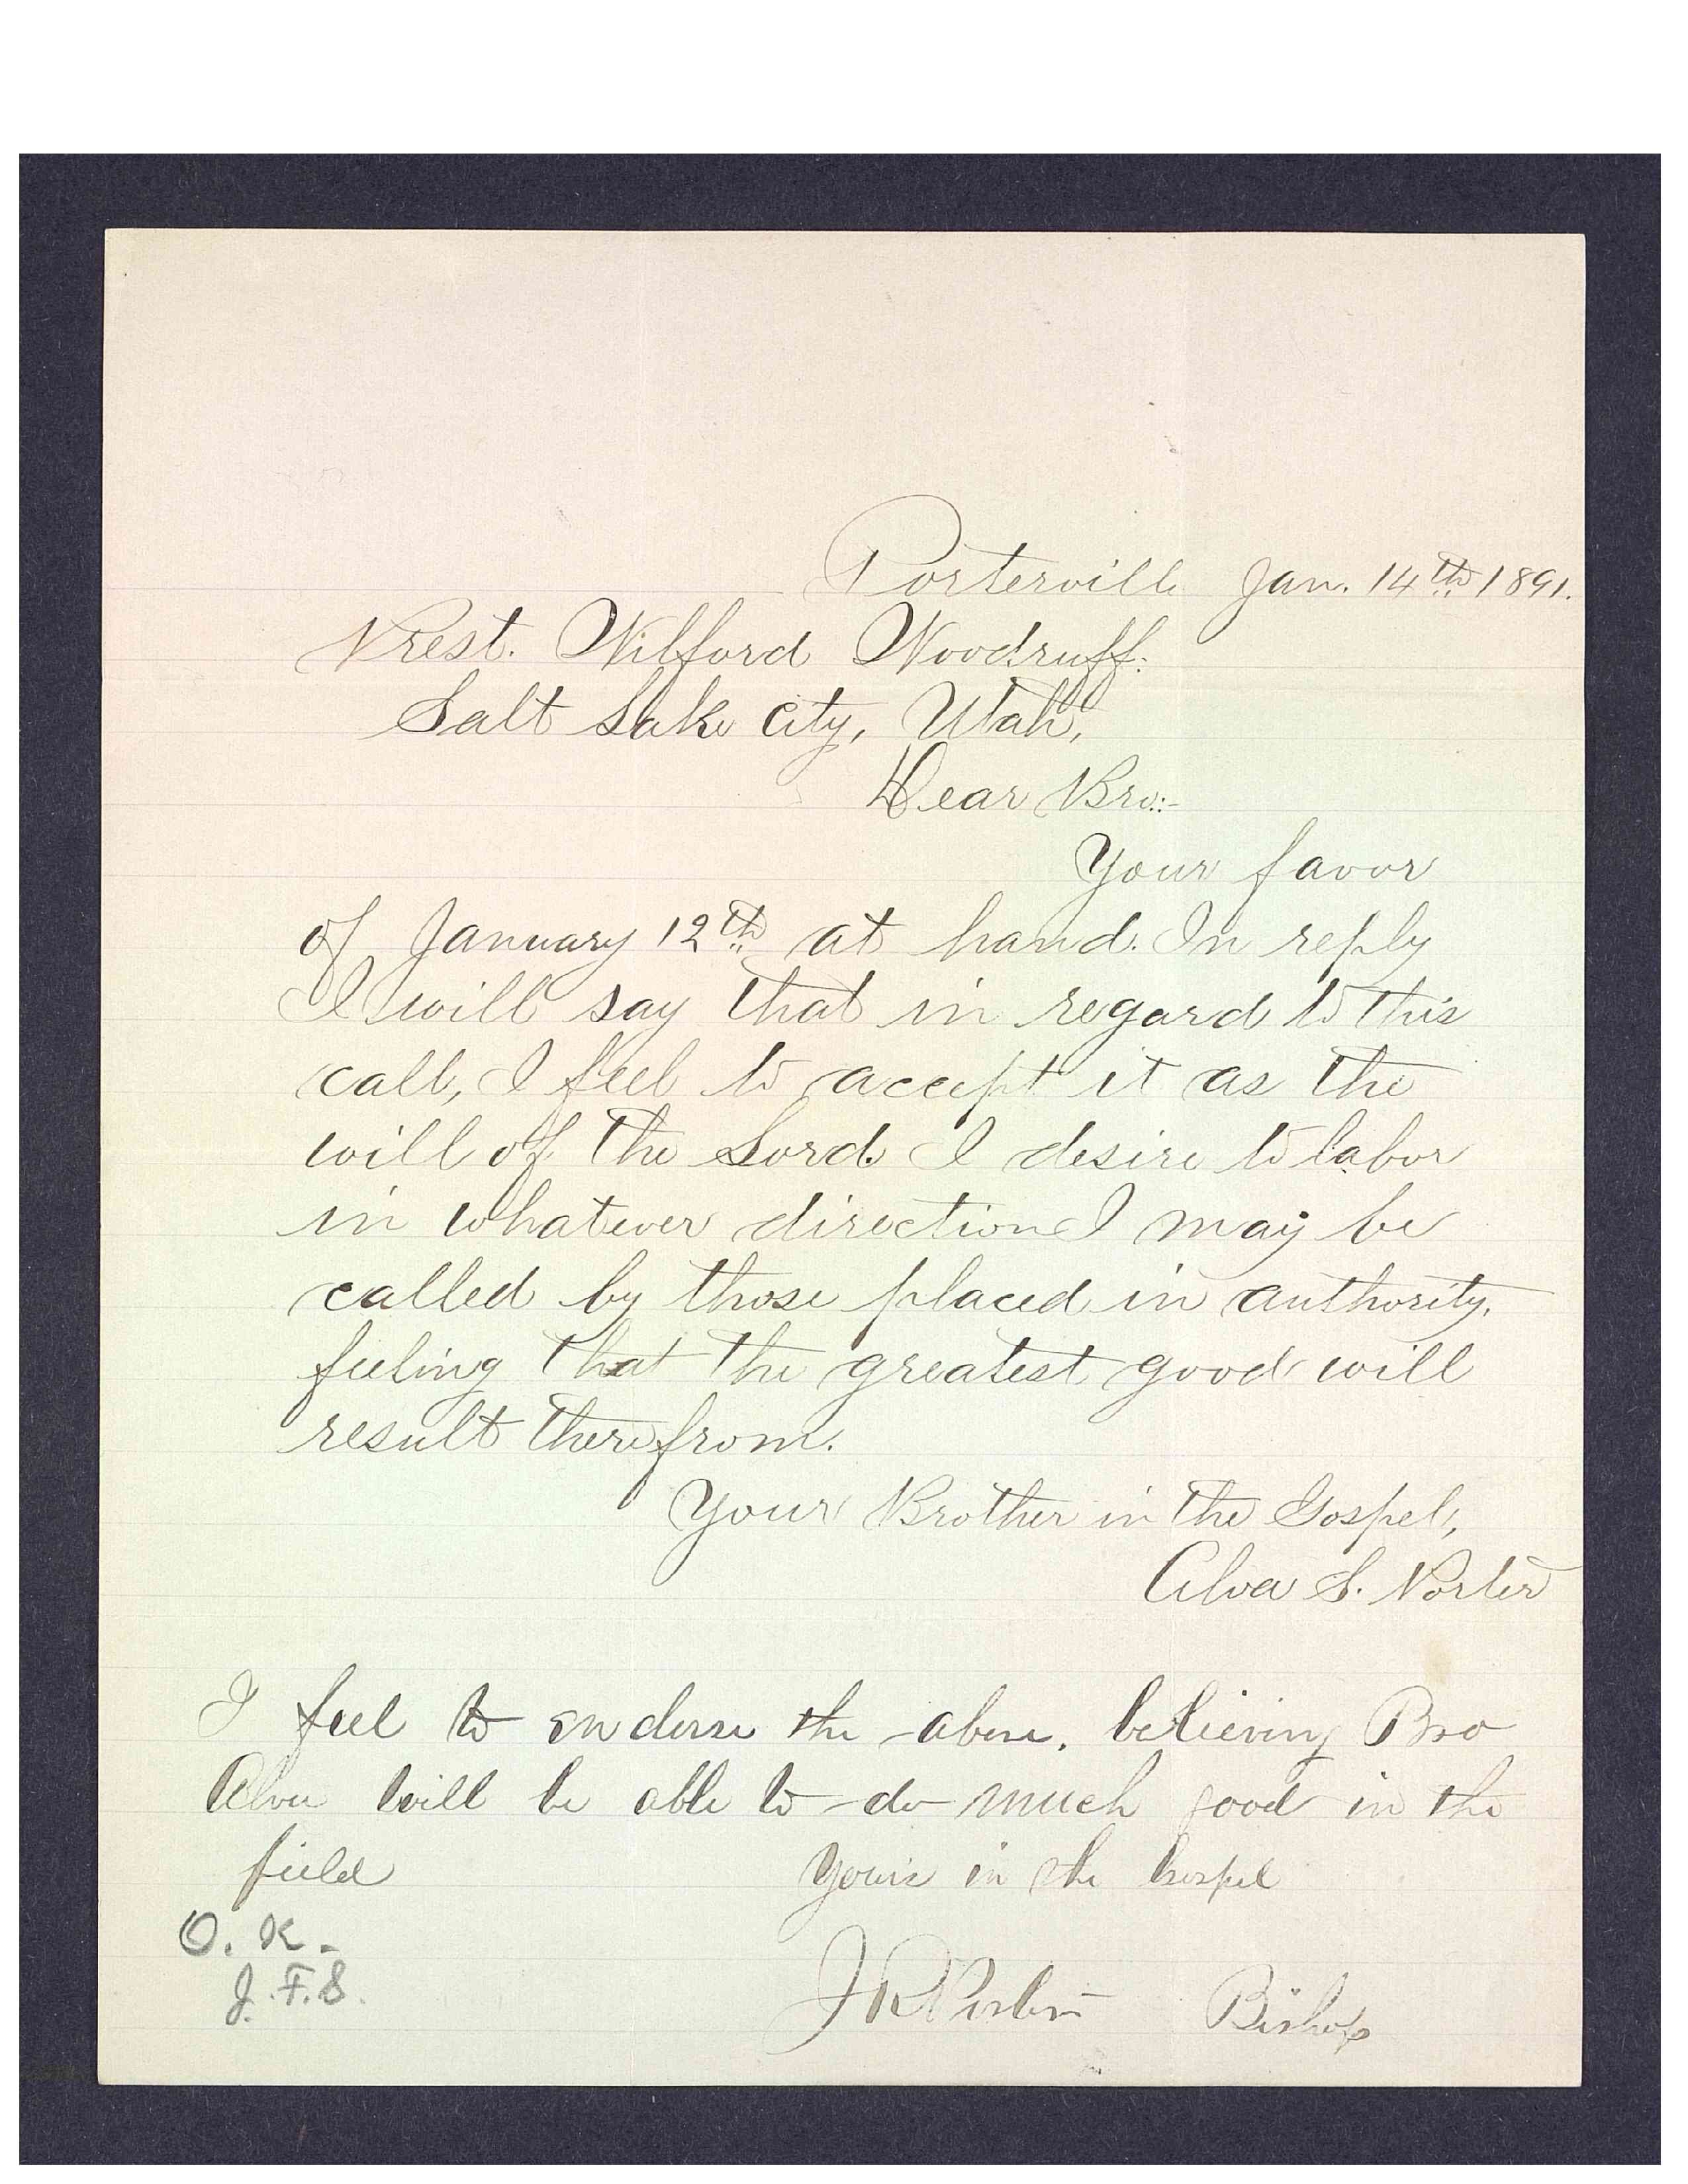 Porterville Jan. 14th 1891.
Prest. Wilford Woodruff:
Salt Lake City, Utah,
Dear Bro:-
Your favor
of January 12th at hand. In reply
I will say that in regard to this
call, I feel to accept it as the
will of the Lord. I desire to labor
in whatever direction I may be
called by those placed in authority,
feeling that the greatest good will
result therefrom.
Your Brother in the Gospel,
Alva S. Porter
I feel to endorse the above, believing Bro
Alva will be able to do much good in the
field
Yours in the Gospel
O. K.
J. F. S.
J R Porter Bishop